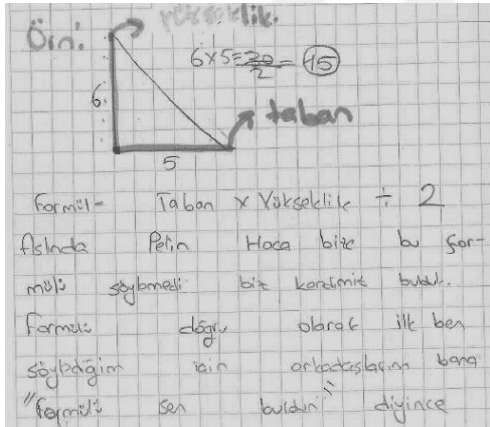 yükseklik.
Örn:
6x5=30/2=15
6
taban
5
formül- Taban x Yükseklik ÷ 2
Aslında Pelin Hoca bize bu for-
mülü söylemedi biz kendimiz bulduk.
formülü doğru olarak ilk ben
söylediğim için arkadaşlarım bana
"formülü sen buldun" diyince